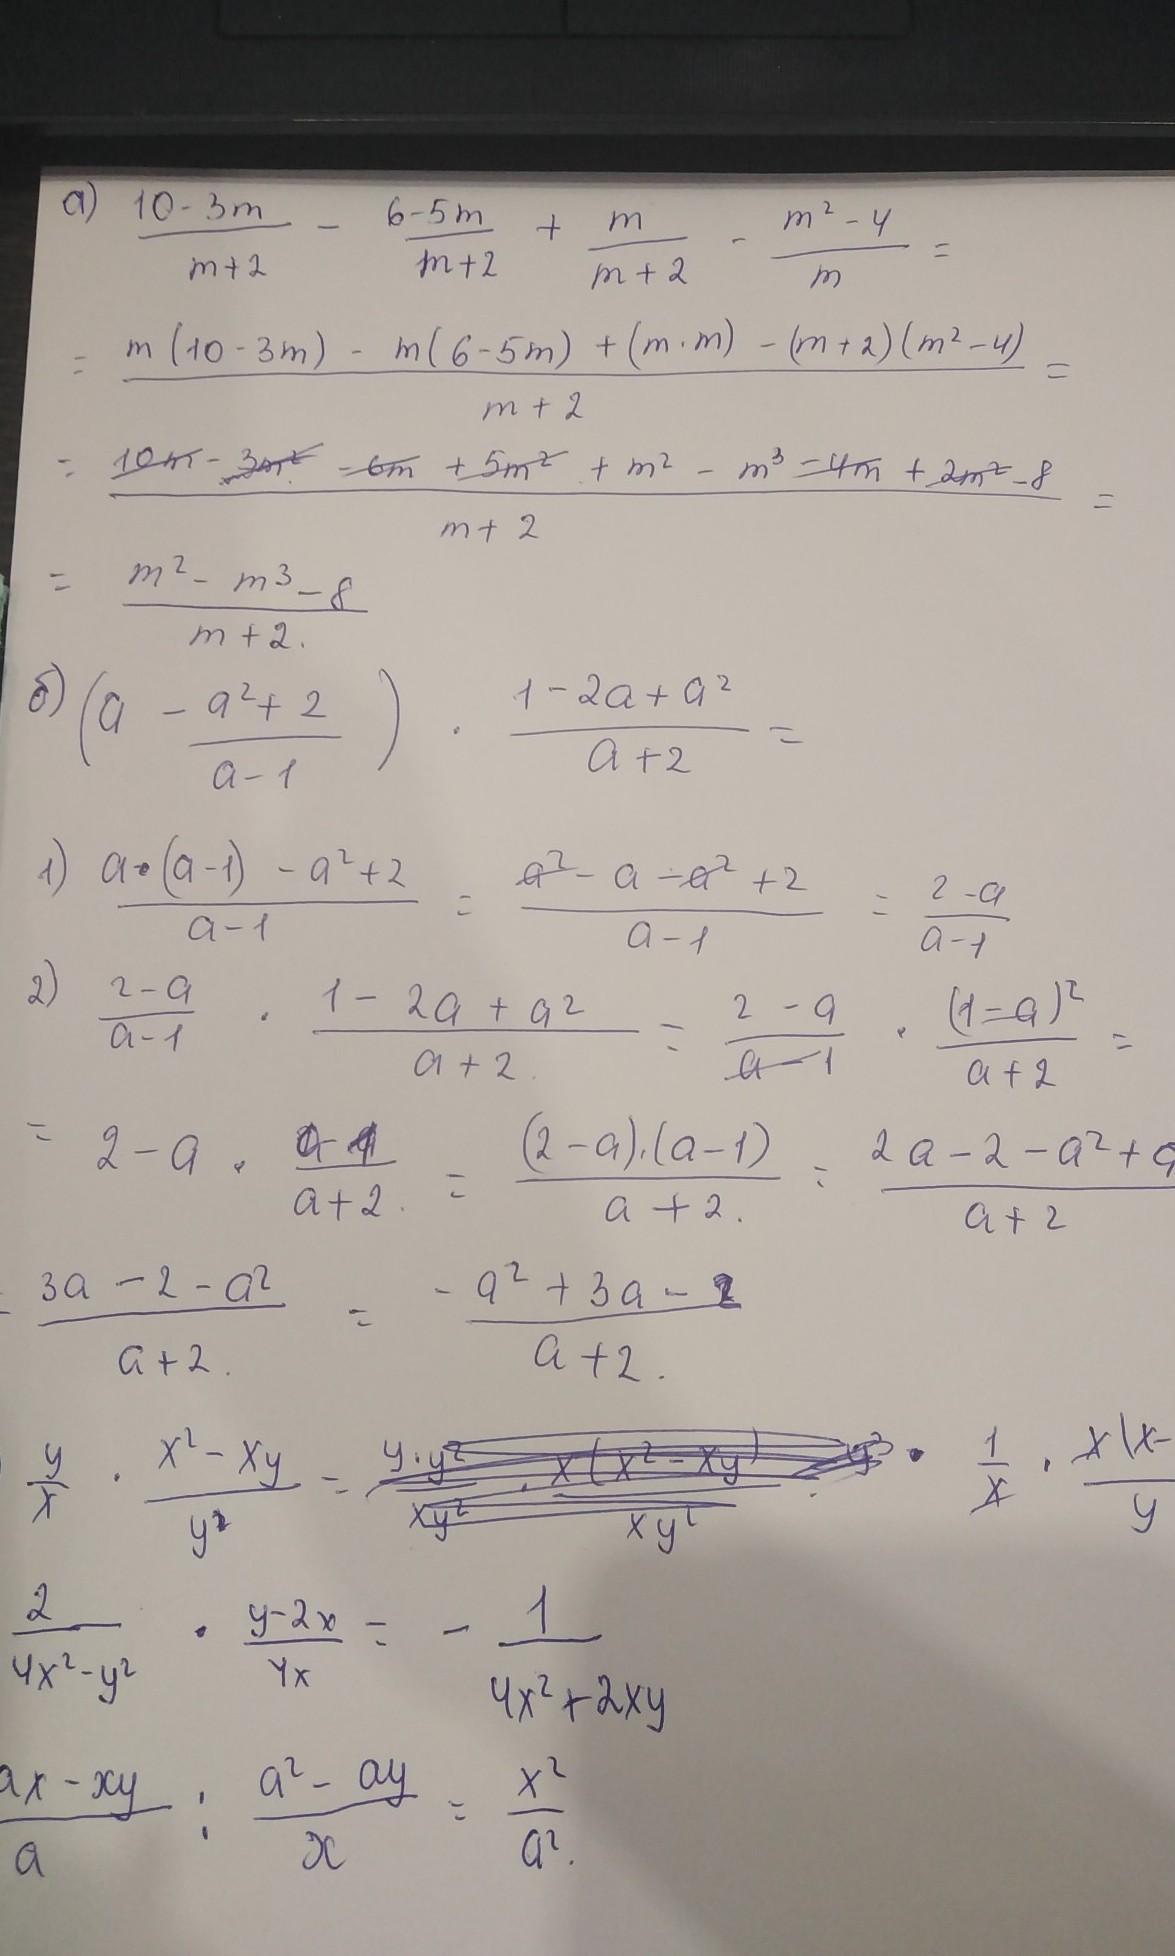 а) (10-3m)/(m+2) - (6-5m)/(m+2) + m/(m+2) - (m²-4)/m =
= (m(10-3m) - m(6-5m) + (m·m) - (m+2)(m²-4))/(m+2) =
= (10m - 3m² - 6m + 5m² + m² - m³ - 4m + 2m² - 8)/(m+2) =
= (m² - m³ - 8)/(m+2).
б) (a - (a²+2)/(a-1)) · (1-2a+a²)/(a+2) =
1) (a·(a-1) - a²+2)/(a-1) = (a² - a - a² + 2)/(a-1) = (2-a)/(a-1)
2) (2-a)/(a-1) · (1-2a+a²)/(a+2) = (2-a)/(a-1) · (1-a)²/(a+2) =
= 2-a · (a-1)/(a+2). = ((2-a)·(a-1))/(a+2). = (2a-2-a²+a)/(a+2)
= (3a-2-a²)/(a+2). = (-a²+3a-2)/(a+2).
y/x · (x²-xy)/y² = 1/x · x(x-/y
2/(4x²-y²) · (y-2x)/4x = - 1/(4x²+2xy)
(ax-xy)/a : (a²-ay)/x = x²/a².